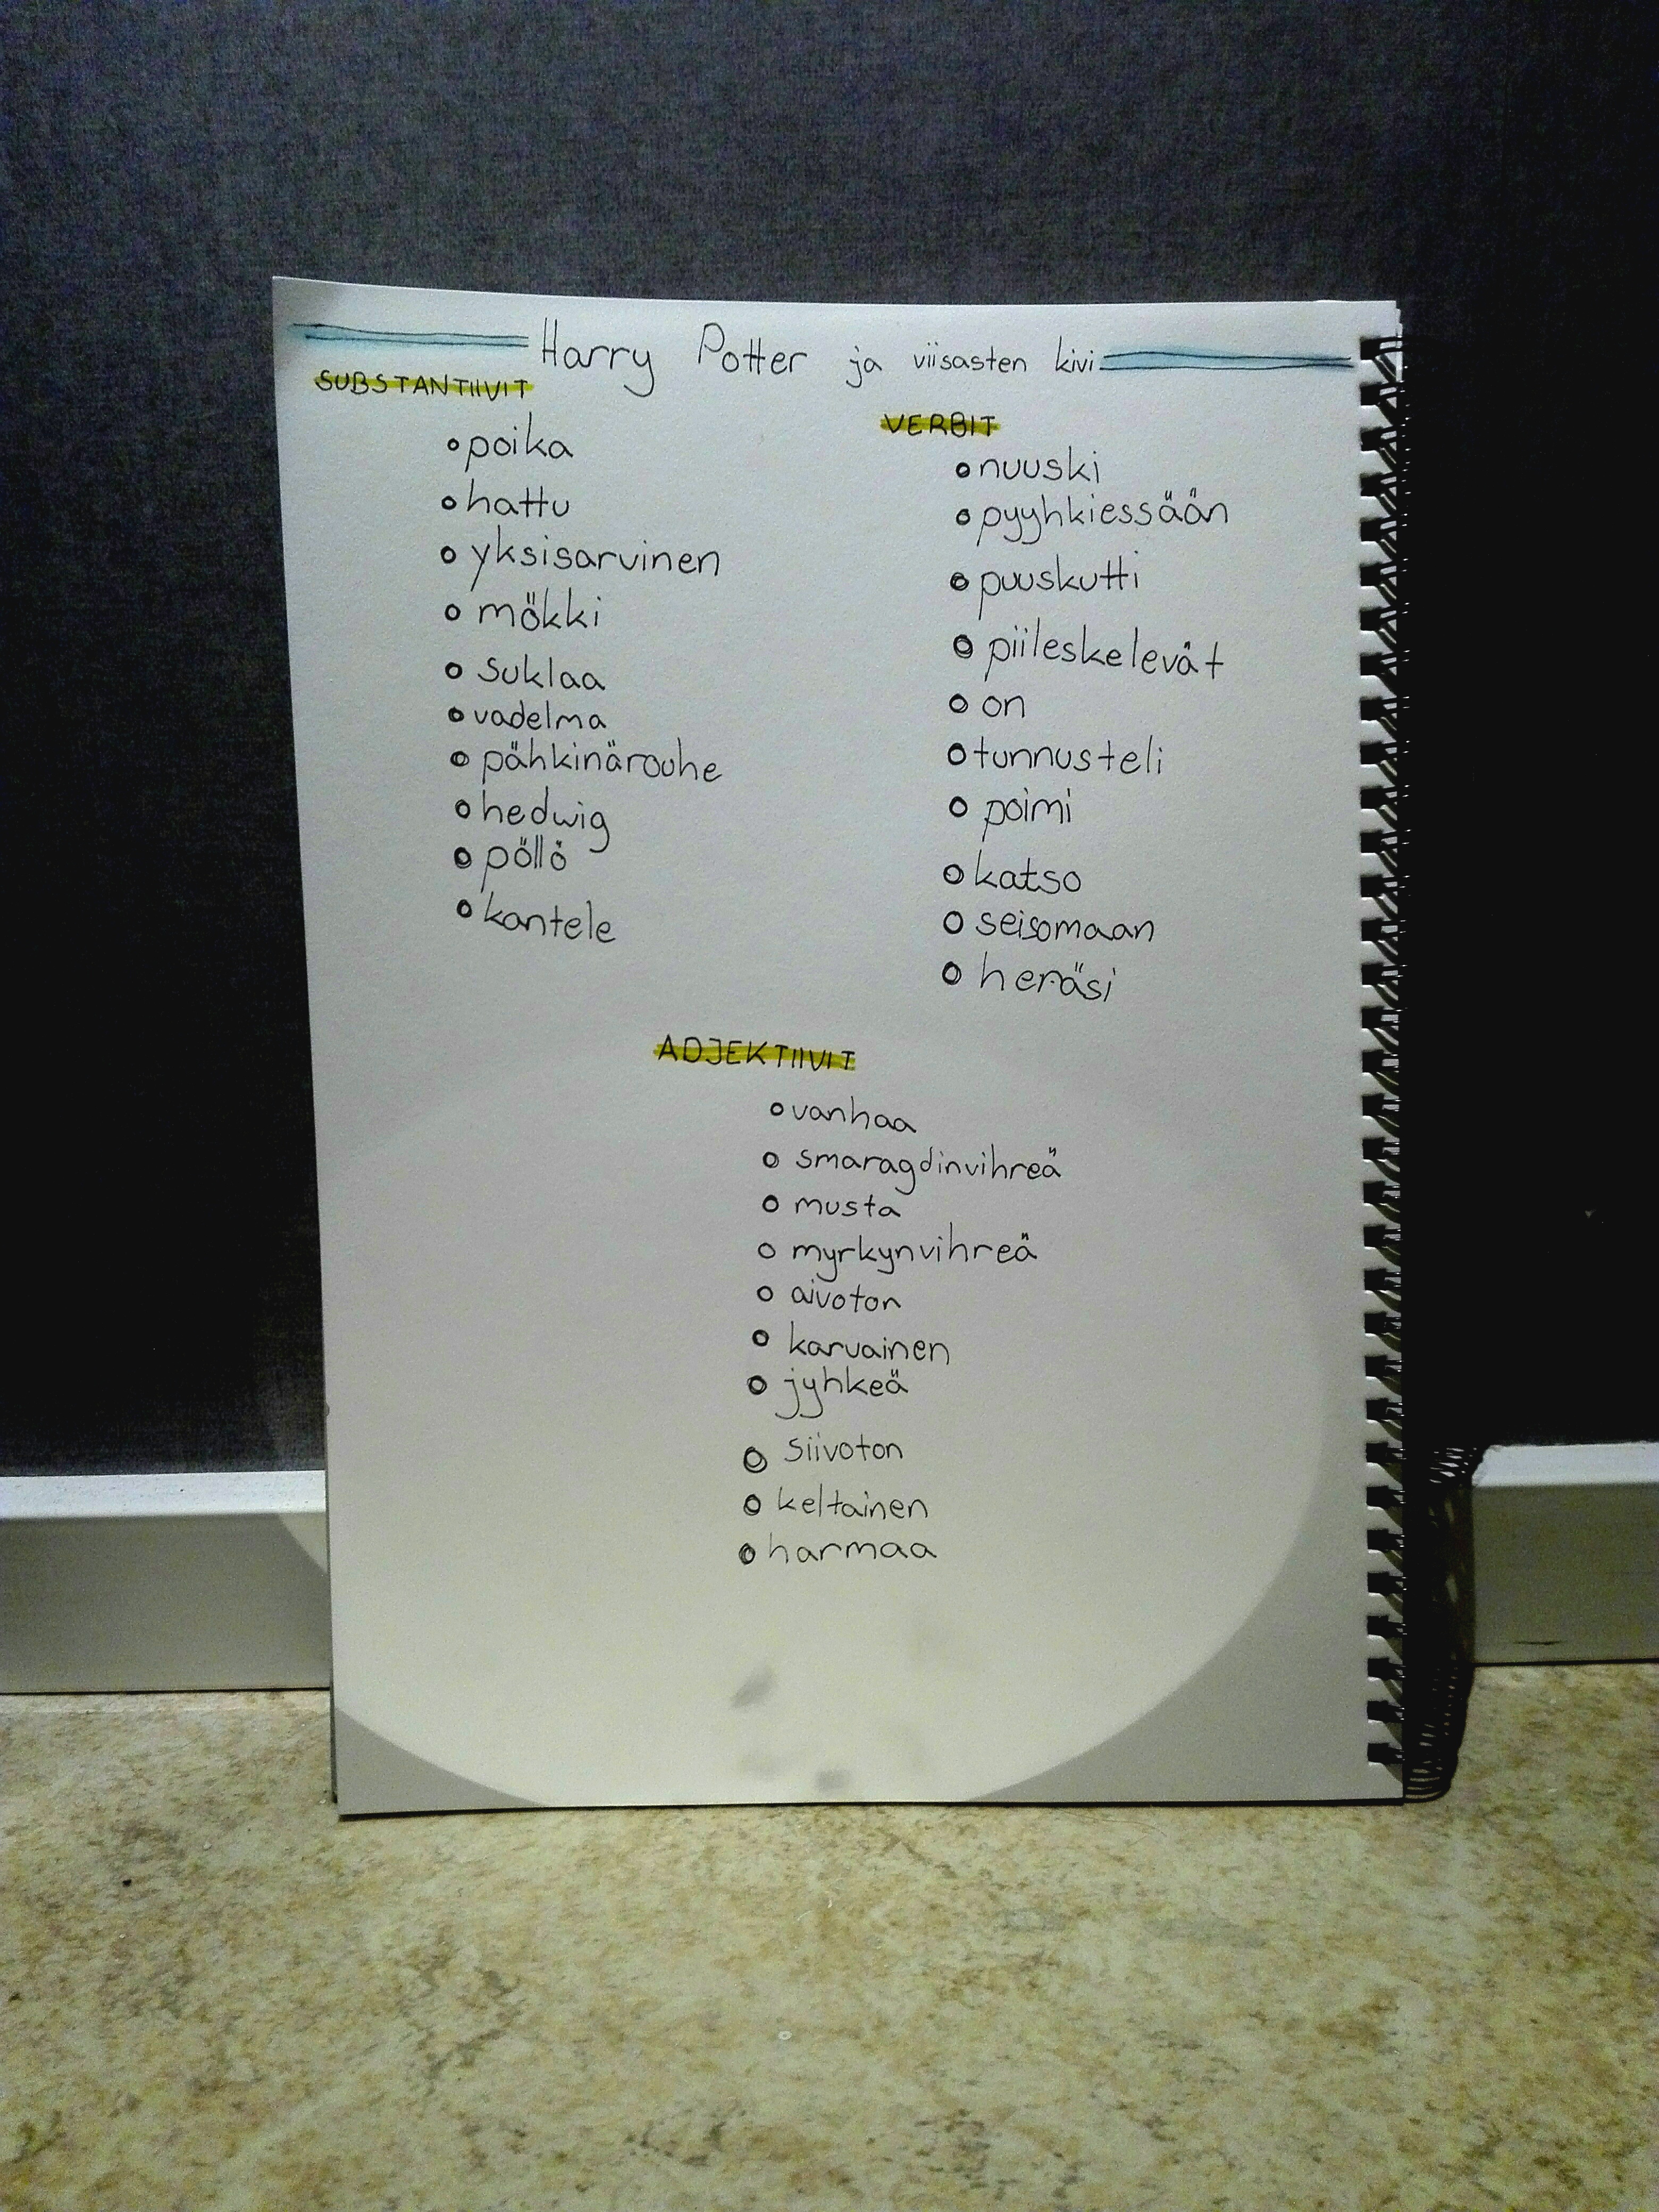 Harry Potter ja viisasten kivi
SUBSTANTIIVIT
poika
hattu
yksisarvinen
mökki
suklaa
vadelma
pähkinärouhe
hedwig
pöllö
kantele
VERBIT
nuuski
pyyhkiessään
puuskutti
piileskelevät
on
tunnusteli
poimi
katso
seisomaan
heräsi
ADJEKTIIVIT
vanhaa
smaragdinvihreä
musta
myrkynvihreä
aivoton
karvainen
jyhkeä
siivoton
keltainen
harmaa